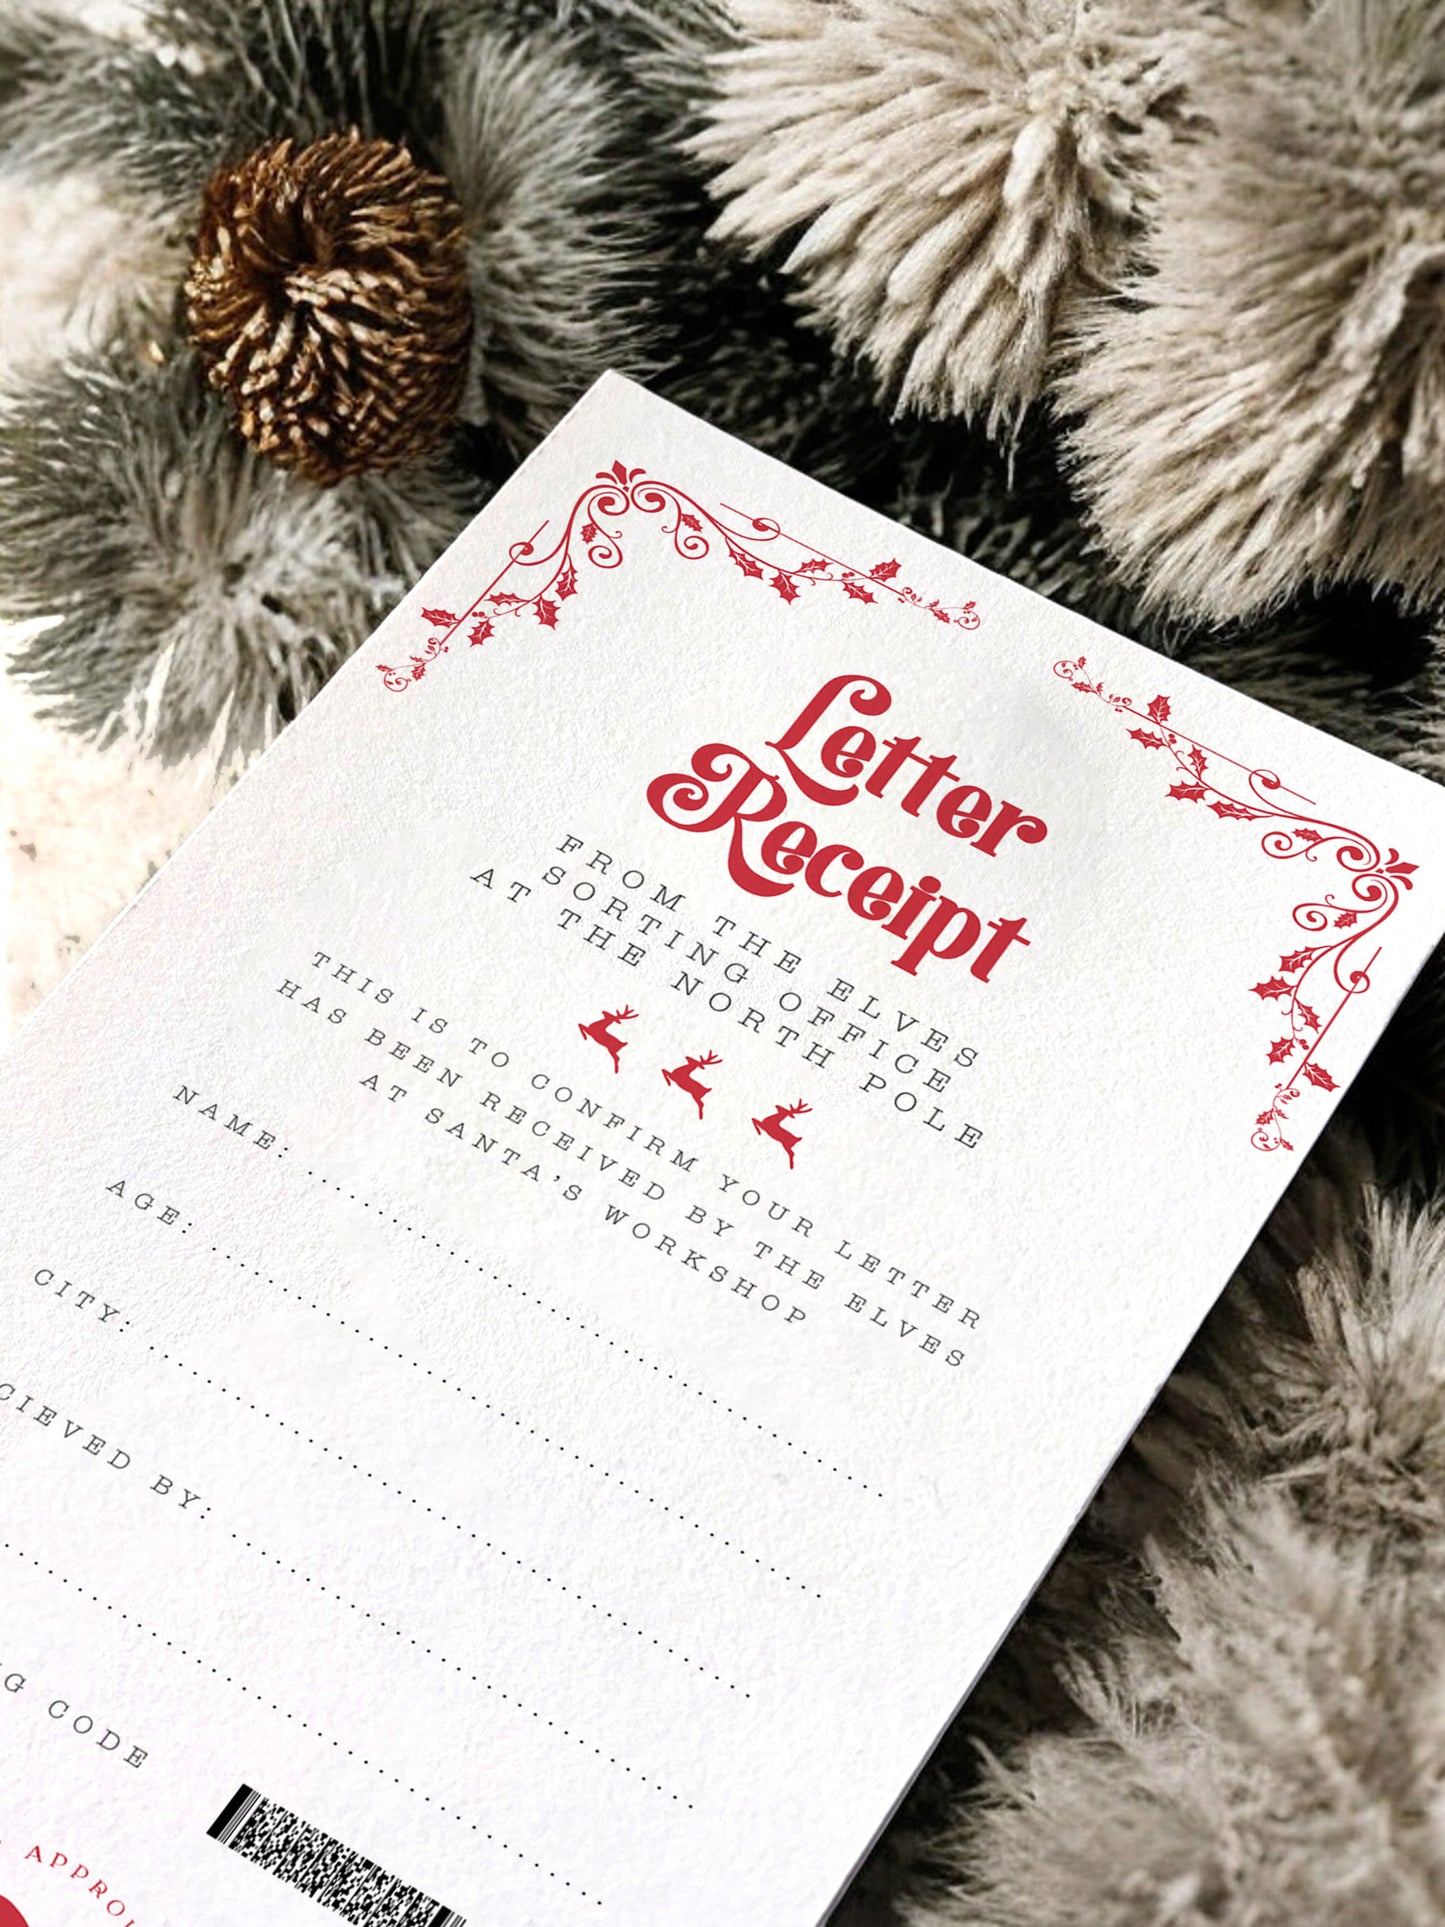 Letter
Receipt
FROM THE ELVES
SORTING OFFICE
AT THE NORTH POLE
THIS IS TO CONFIRM YOUR LETTER
HAS BEEN RECEIVED BY THE ELVES
AT SANTA'S WORKSHOP
NAME:
AGE:
CITY:
BY:
CODE